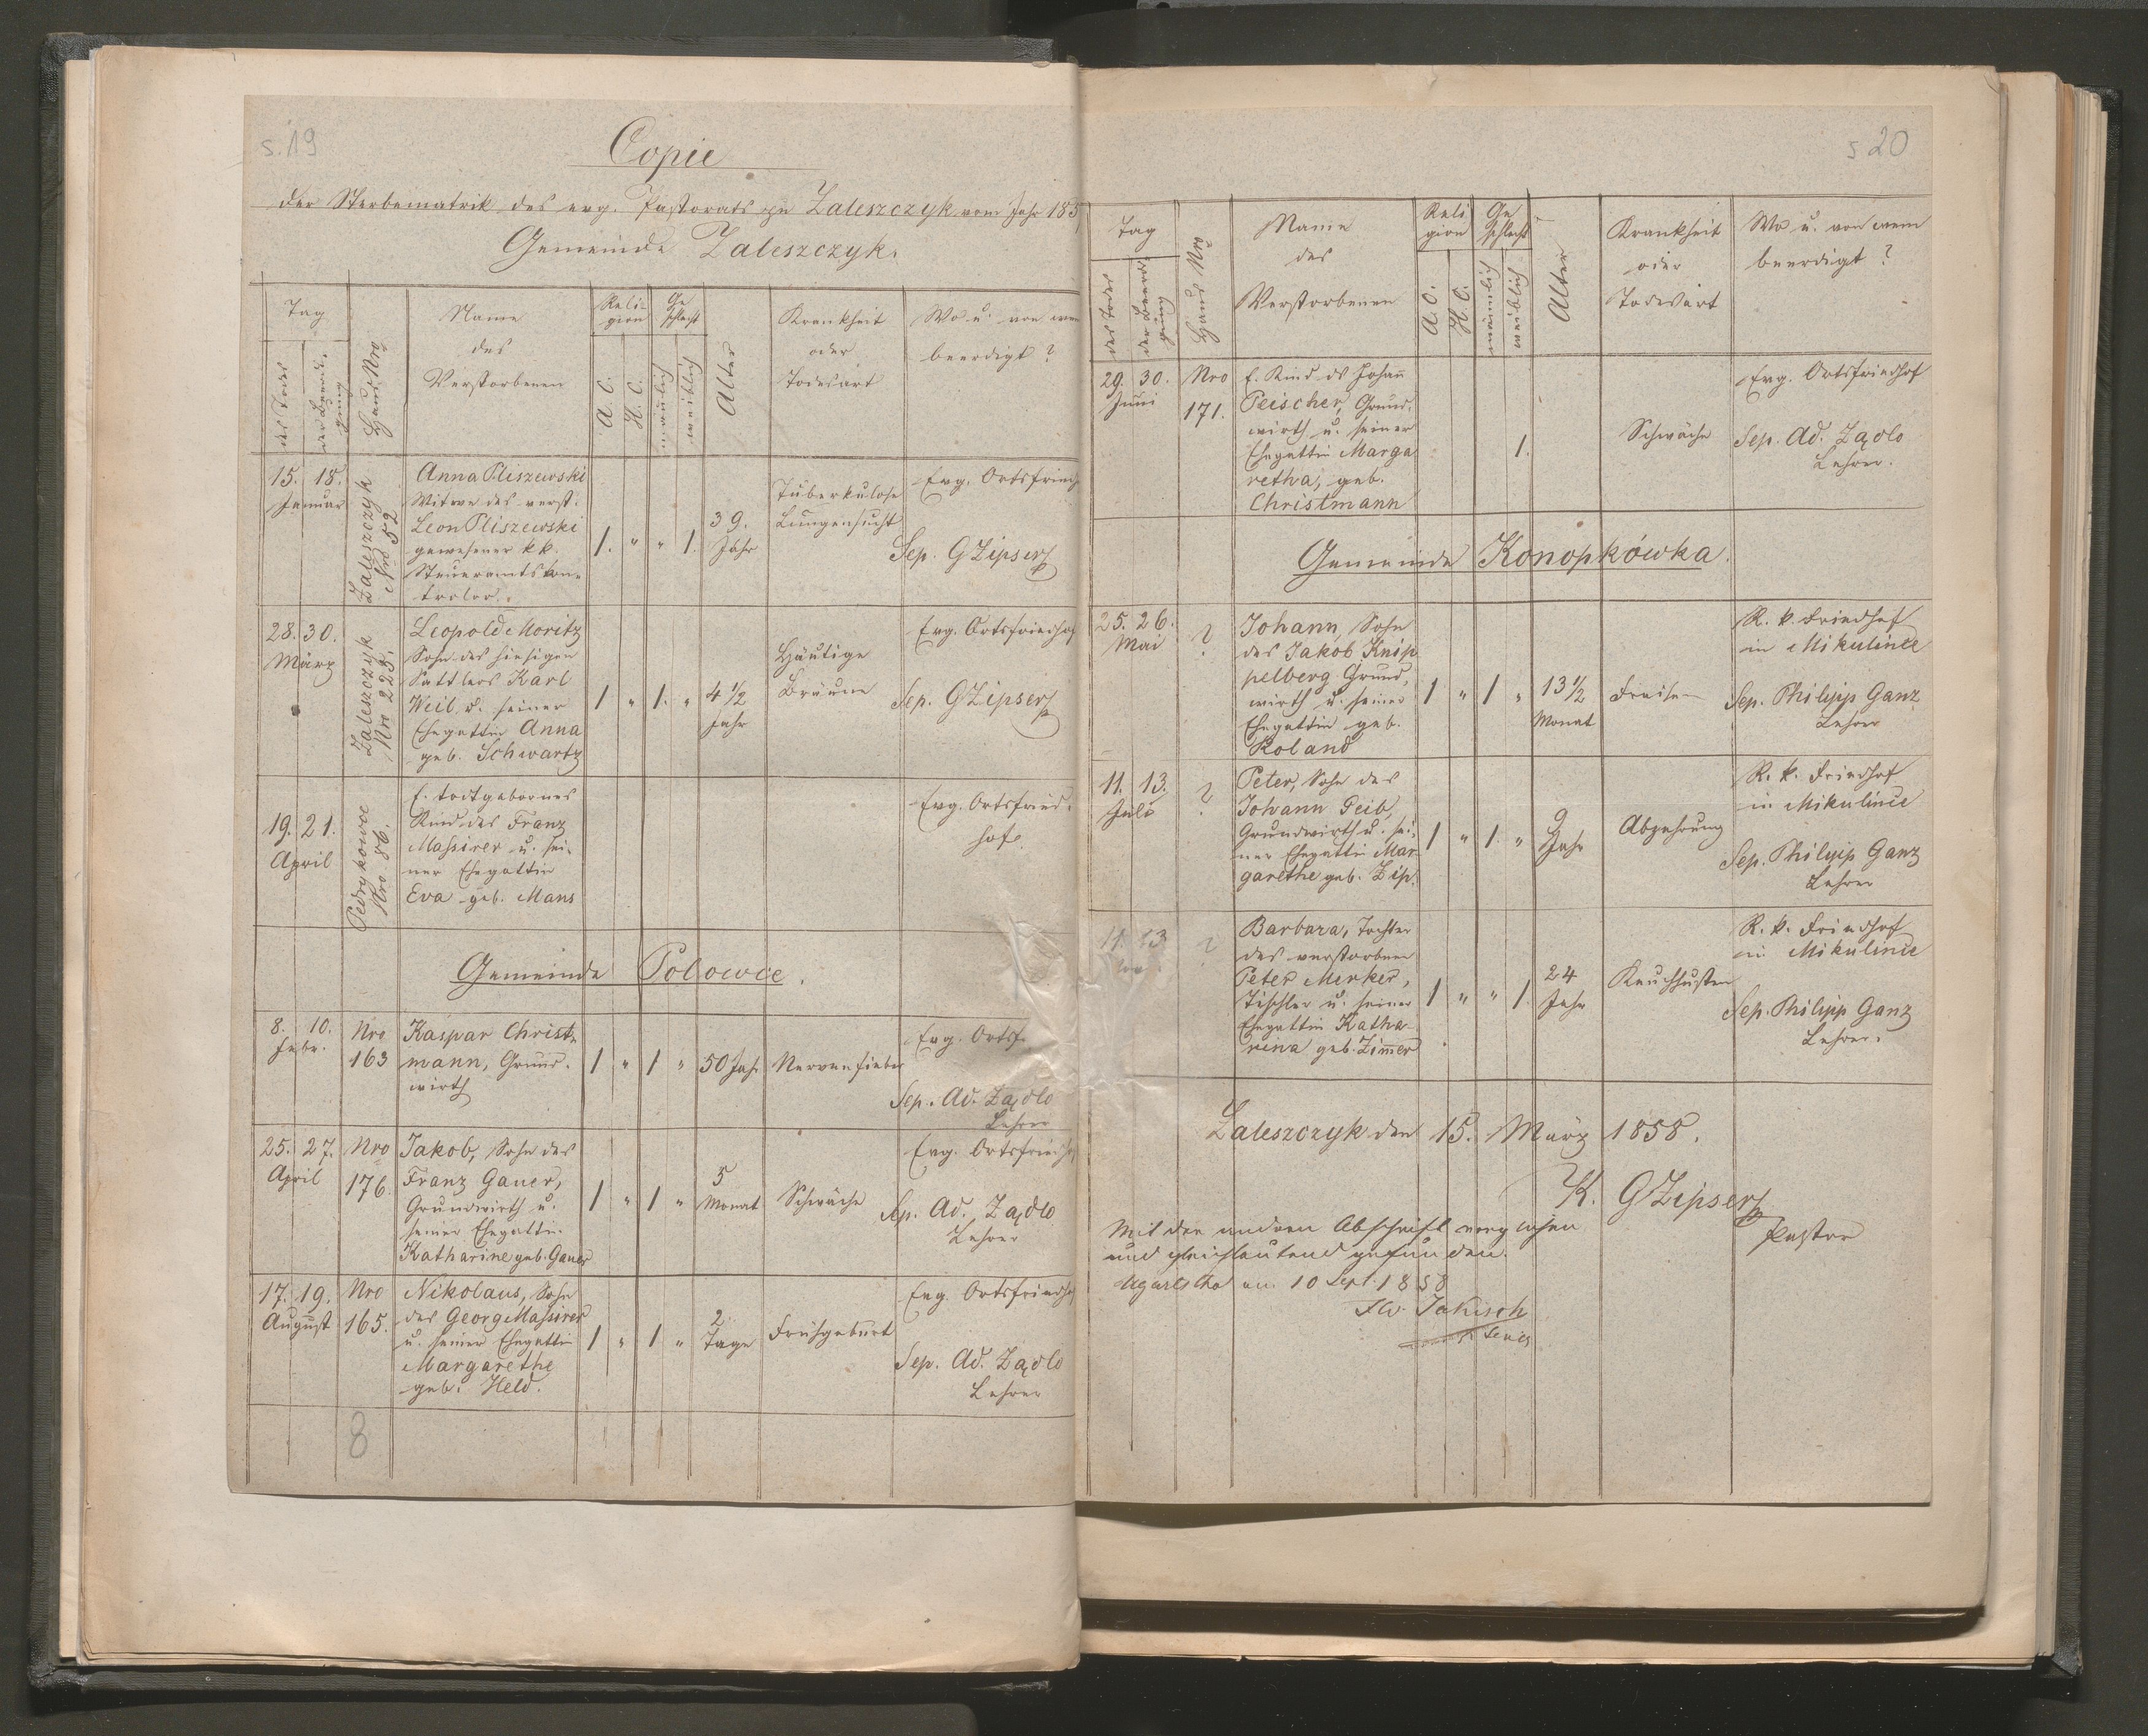 s. 19
Copie
der Sterbematrik des evg. Pastorats zu Zaleszczyk vom Jahr 185
Gemeinde Zaleszczyk.
Tag
des Todes
der Beerdi-
gung
Haus Nro
Name
des
Verstorbenen
Reli-
gion
A. C.
H. C.
Ge
schlecht
mänlich
weiblich
Alter
Krankheit
oder
Todesart
Wo u. von wem
beerdigt?
15. 18.
Januar
Zaleszczyk
Nro 52
Anna Pliszewski
Witwe des verst.
Leon Pliszewski
gewesener k k.
Steueramtskon-
trolor.
1. " " 1.
39.
Jahr
Tuberkulose
Lungensucht
Evg. Ortsfriedh
Sep. GZipser
28. 30.
März
Zaleszczyk
Nro 228.
Leopold Moritz
Sohn des hiesigen
Sattlers Karl
Weil u. seiner
Ehegattin Anna
geb. Schwartz
1 " 1. "
4 1/2
Jahr
Häutige
Bräune
Evg. Ortsfriedhof
Sep. GZipser
19. 21.
April
Pedrykowce
Nro 86.
E. todtgebornes
Kind des Franz
Massirer u. sei-
ner Ehegattin
Eva geb. Mans
Evg. Ortsfried-
hofe
Gemeinde Polowce.
8. 10.
Febr.
Nro
163
Kaspar Christ-
mann, Grund-
wirth
1 " 1 "
50 Jahr
Nervenfieber
Evg. Ortsf.
Sep. Ad. Żądlo
Lehrer
25. 27.
April
Nro
176.
Jakob, Sohn des
Franz Gauer,
Grundwirth u.
seiner Ehegattin
Katharine geb. Gauer
1 " 1 "
5
Monat
Schwäche
Evg. Ortsfriedh
Sep. Ad. Żądlo
Lehrer
17. 19.
August
Nro
165.
Nikolaus, Sohn
des Georg Massirer
u. seiner Ehegattin
Margarethe
geb. Held.
1 " 1 "
2
Tage
Frühgeburt
Evg. Ortsfriedh
Sep. Ad. Żądlo
Lehrer
8
s 20
Tag
des Todes
der Beerdi-
gung
Haus Nro
Name
des
Verstorbenen
Reli
gion
A. C.
H. C.
Ge
schlecht
männlich
weiblich
Alter
Krankheit
oder
Todesart
Wo u. von wem
beerdigt?
29. 30.
Juni
Nro
171.
E. Kind ds Johan̄
Peischer, Grund-
wirth u. seiner
Ehegattin Marga
retha, geb.
Christmann
1.
Schwäche
Evg. Ortsfriedhof
Sep. Ad. Żądlo
Lehrer.
Gemeinde Konopkówka.
25. 26.
Mai
?
Johann, Sohn
des Jakob Knip
pelberg Grund-
wirth u. seiner
Ehegattin geb.
Roland
1 " 1 "
13 1/2
Monat
Fraisen
R. k. Friedhof
in Mikulince
Sep. Philipp Ganz
Lehrer
11. 13.
Juli
?
Peter, Sohn des
Johann Geib,
Grundwirth u. sei-
ner Ehegattin Mar-
garethe geb. Zip.
1 " 1. "
9
Jahr
Abzehrung
R. k. Friedhof
in Mikulince
Sep. Philipp Ganz
Lehrer
11. 13.
?
Barbara, Tochter
des verstorbnen
Peter Merker,
Tischler u. seiner
Ehegattin Katha-
rina geb. Zim̄er
1 " " 1.
24
Jahr
Keuchhusten
R. k. Friedhof
in Mikulince
Sep. Philipp Ganz
Lehrer.
Zaleszczyk den 15. März 1858.
K. GZipser
Pastor
Mit der andren Abschrift verglichen
und gleichlautend gefunden.
Ugartsthal am 10 Sept. 1858
Fw. Jakisch